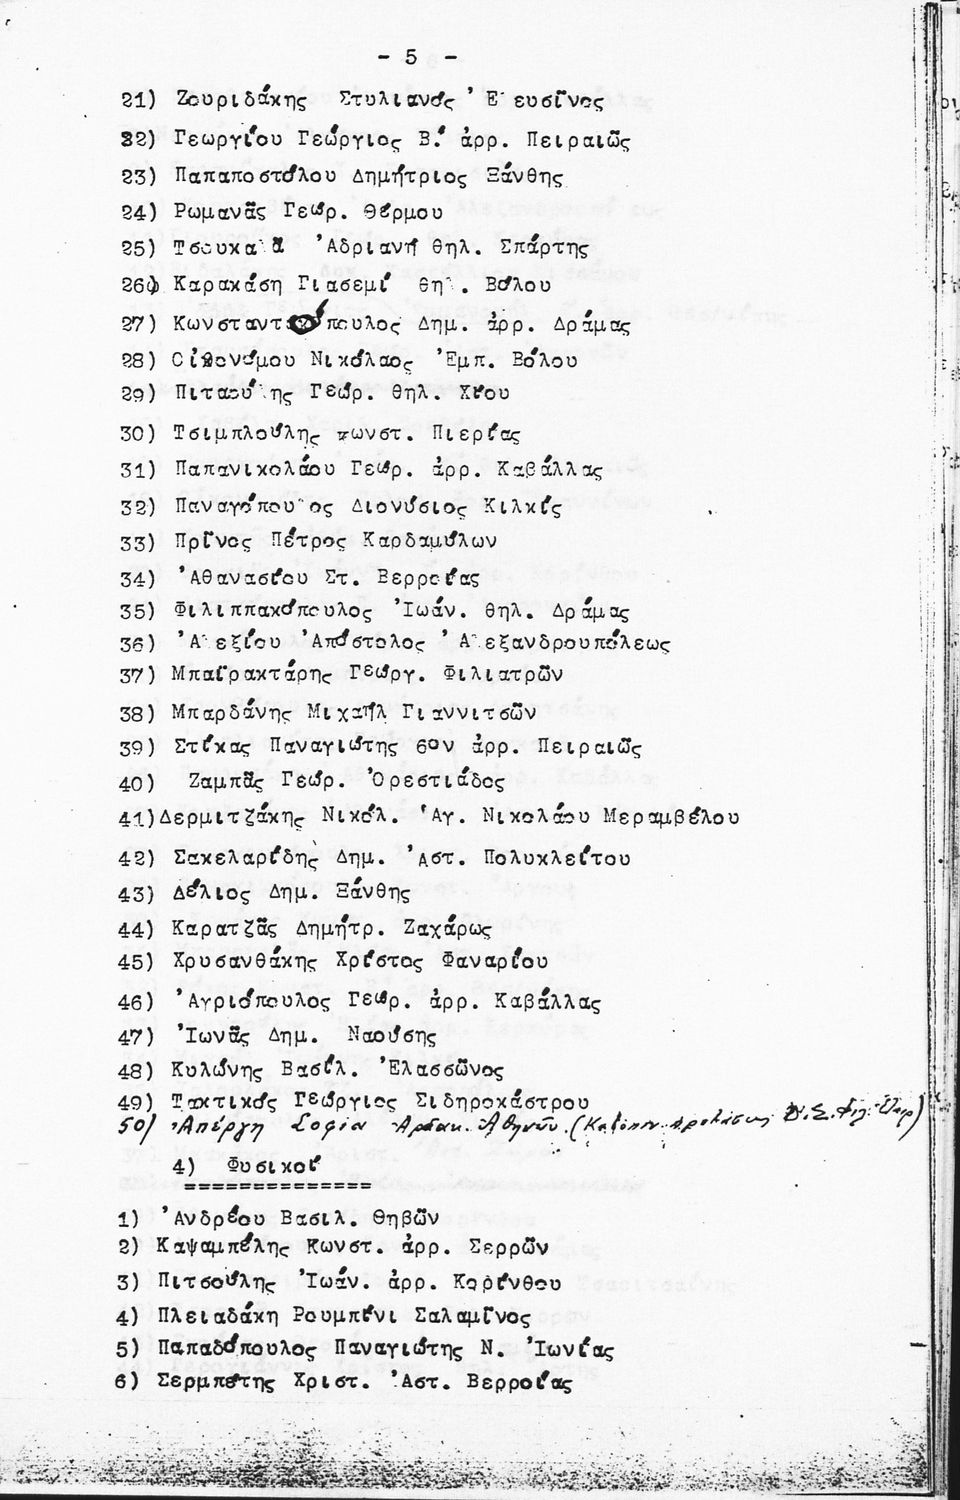 - 5 -
21) Ζουριδάκης Στυλιανός Ἐλευσῖνος
22) Γεωργίου Γεώργιος Β.΄ ἀρρ. Πειραιῶς
23) Παπαποστόλου Δημήτριος Ξάνθης
24) Ρωμανᾶς Γεώρ. Θέρμου
25) Τσουκαλᾶ Ἀδριανή θηλ. Σπάρτης
26) Καρακάση Γιασεμί θηλ. Βόλου
27) Κωνσταντινόπουλος Δημ. ἀρρ. Δράμας
28) Οἰκονόμου Νικόλαος Ἐμπ. Βόλου
29) Πιταούλης Γεώρ. θηλ. Χίου
30) Τσιμπλούλης Κωνστ. Πιερίας
31) Παπανικολάου Γεώρ. ἀρρ. Καβάλλας
32) Παναγόπουλος Διονύσιος Κιλκίς
33) Πρῖνος Πέτρος Καρδαμύλων
34) Ἀθανασίου Στ. Βερροίας
35) Φιλιππακόπουλος Ἰωάν. θηλ. Δράμας
36) Ἀλεξίου Ἀπόστολος Ἀλεξανδρουπόλεως
37) Μπαϊρακτάρης Γεώργ. Φιλιατρῶν
38) Μπαρδάνης Μιχαήλ Γιαννιτσῶν
39) Στίκας Παναγιώτης 6ον ἀρρ. Πειραιῶς
40) Ζαμπᾶς Γεώρ. Ὀρεστιάδος
41) Δερμιτζάκης Νικόλ. Ἁγ. Νικολάου Μεραμβέλου
42) Σακελαρίδης Δημ. Ἀστ. Πολυκλείτου
43) Δέλιος Δημ. Ξάνθης
44) Καρατζᾶς Δημήτρ. Ζαχάρως
45) Χρυσανθάκης Χρίστος Φαναρίου
46) Ἀγριόπουλος Γεώρ. ἀρρ. Καβάλλας
47) Ἰωνᾶς Δημ. Ναούσης
48) Κυλώνης Βασίλ. Ἐλασσῶνος
49) Τακτικός Γεώργιος Σιδηροκάστρου
50) Ἀπέργη Σοφία Ἀρσακ. Ἀθηνῶν
4) Φυσικοί
==============
1) Ἀνδρέου Βασιλ. Θηβῶν
2) Καψαμπέλης Κωνστ. ἀρρ. Σερρῶν
3) Πιτσούλης Ἰωάν. ἀρρ. Κορίνθου
4) Πλειαδάκη Ρουμπίνι Σαλαμῖνος
5) Παπαδόπουλος Παναγιώτης Ν. Ἰωνίας
6) Σερμπέτης Χριστ. Ἀστ. Βερροίας